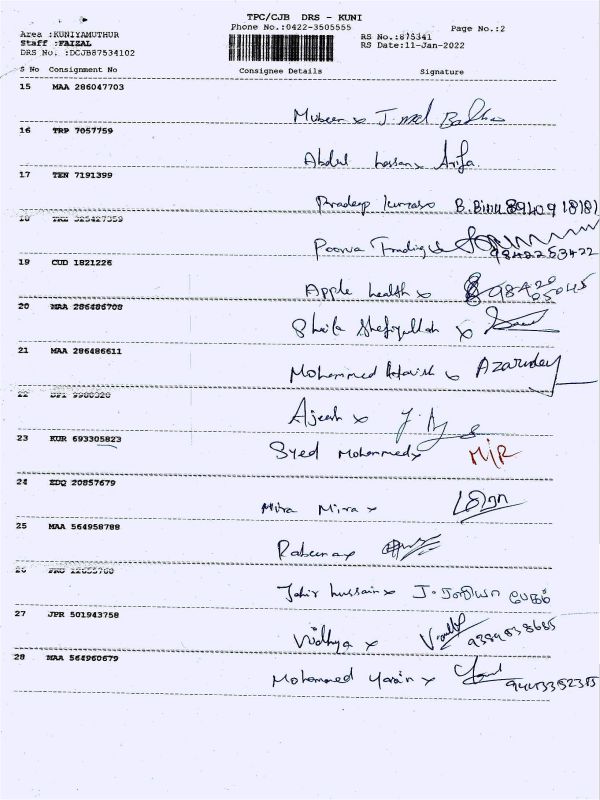 TPC/CJB DRS - KUNI
Phone No.:0422-3505555
Page No.:2
Area :KUNIYAMUTHUR
Staff :FAIZAL
DRS No. :DCJB87534102
RS No.:875341
RS Date:11-Jan-2022
S No Consignment No Consignee Details Signature
15 MAA 286047703
Mubeen x J. mel
16 TRP 7057759
Abdul hassan x Arifa.
17 TEN 7191399
Pradeep kumar x B. Binu 89409 18181
18 325427359
Poorva Trading x 9842253422
19 CUD 1821226
Apple health x 98420 05045
20 MAA 286486708
Sheila Shefiyullah x
21 MAA 286486611
Mohammed x
22
Ajeesh x
23 KUR 693305823
Syed Mohammed x MJR
24 EDQ 20857679
Mira Mira x மீரா
25 MAA 564958788
Rabeena x
26
Jahir hussain x J. ரஸியா பேகம்
27 JPR 501943758
Vidhya x 9389838685
28 MAA 564960679
Mohammed Yasin x